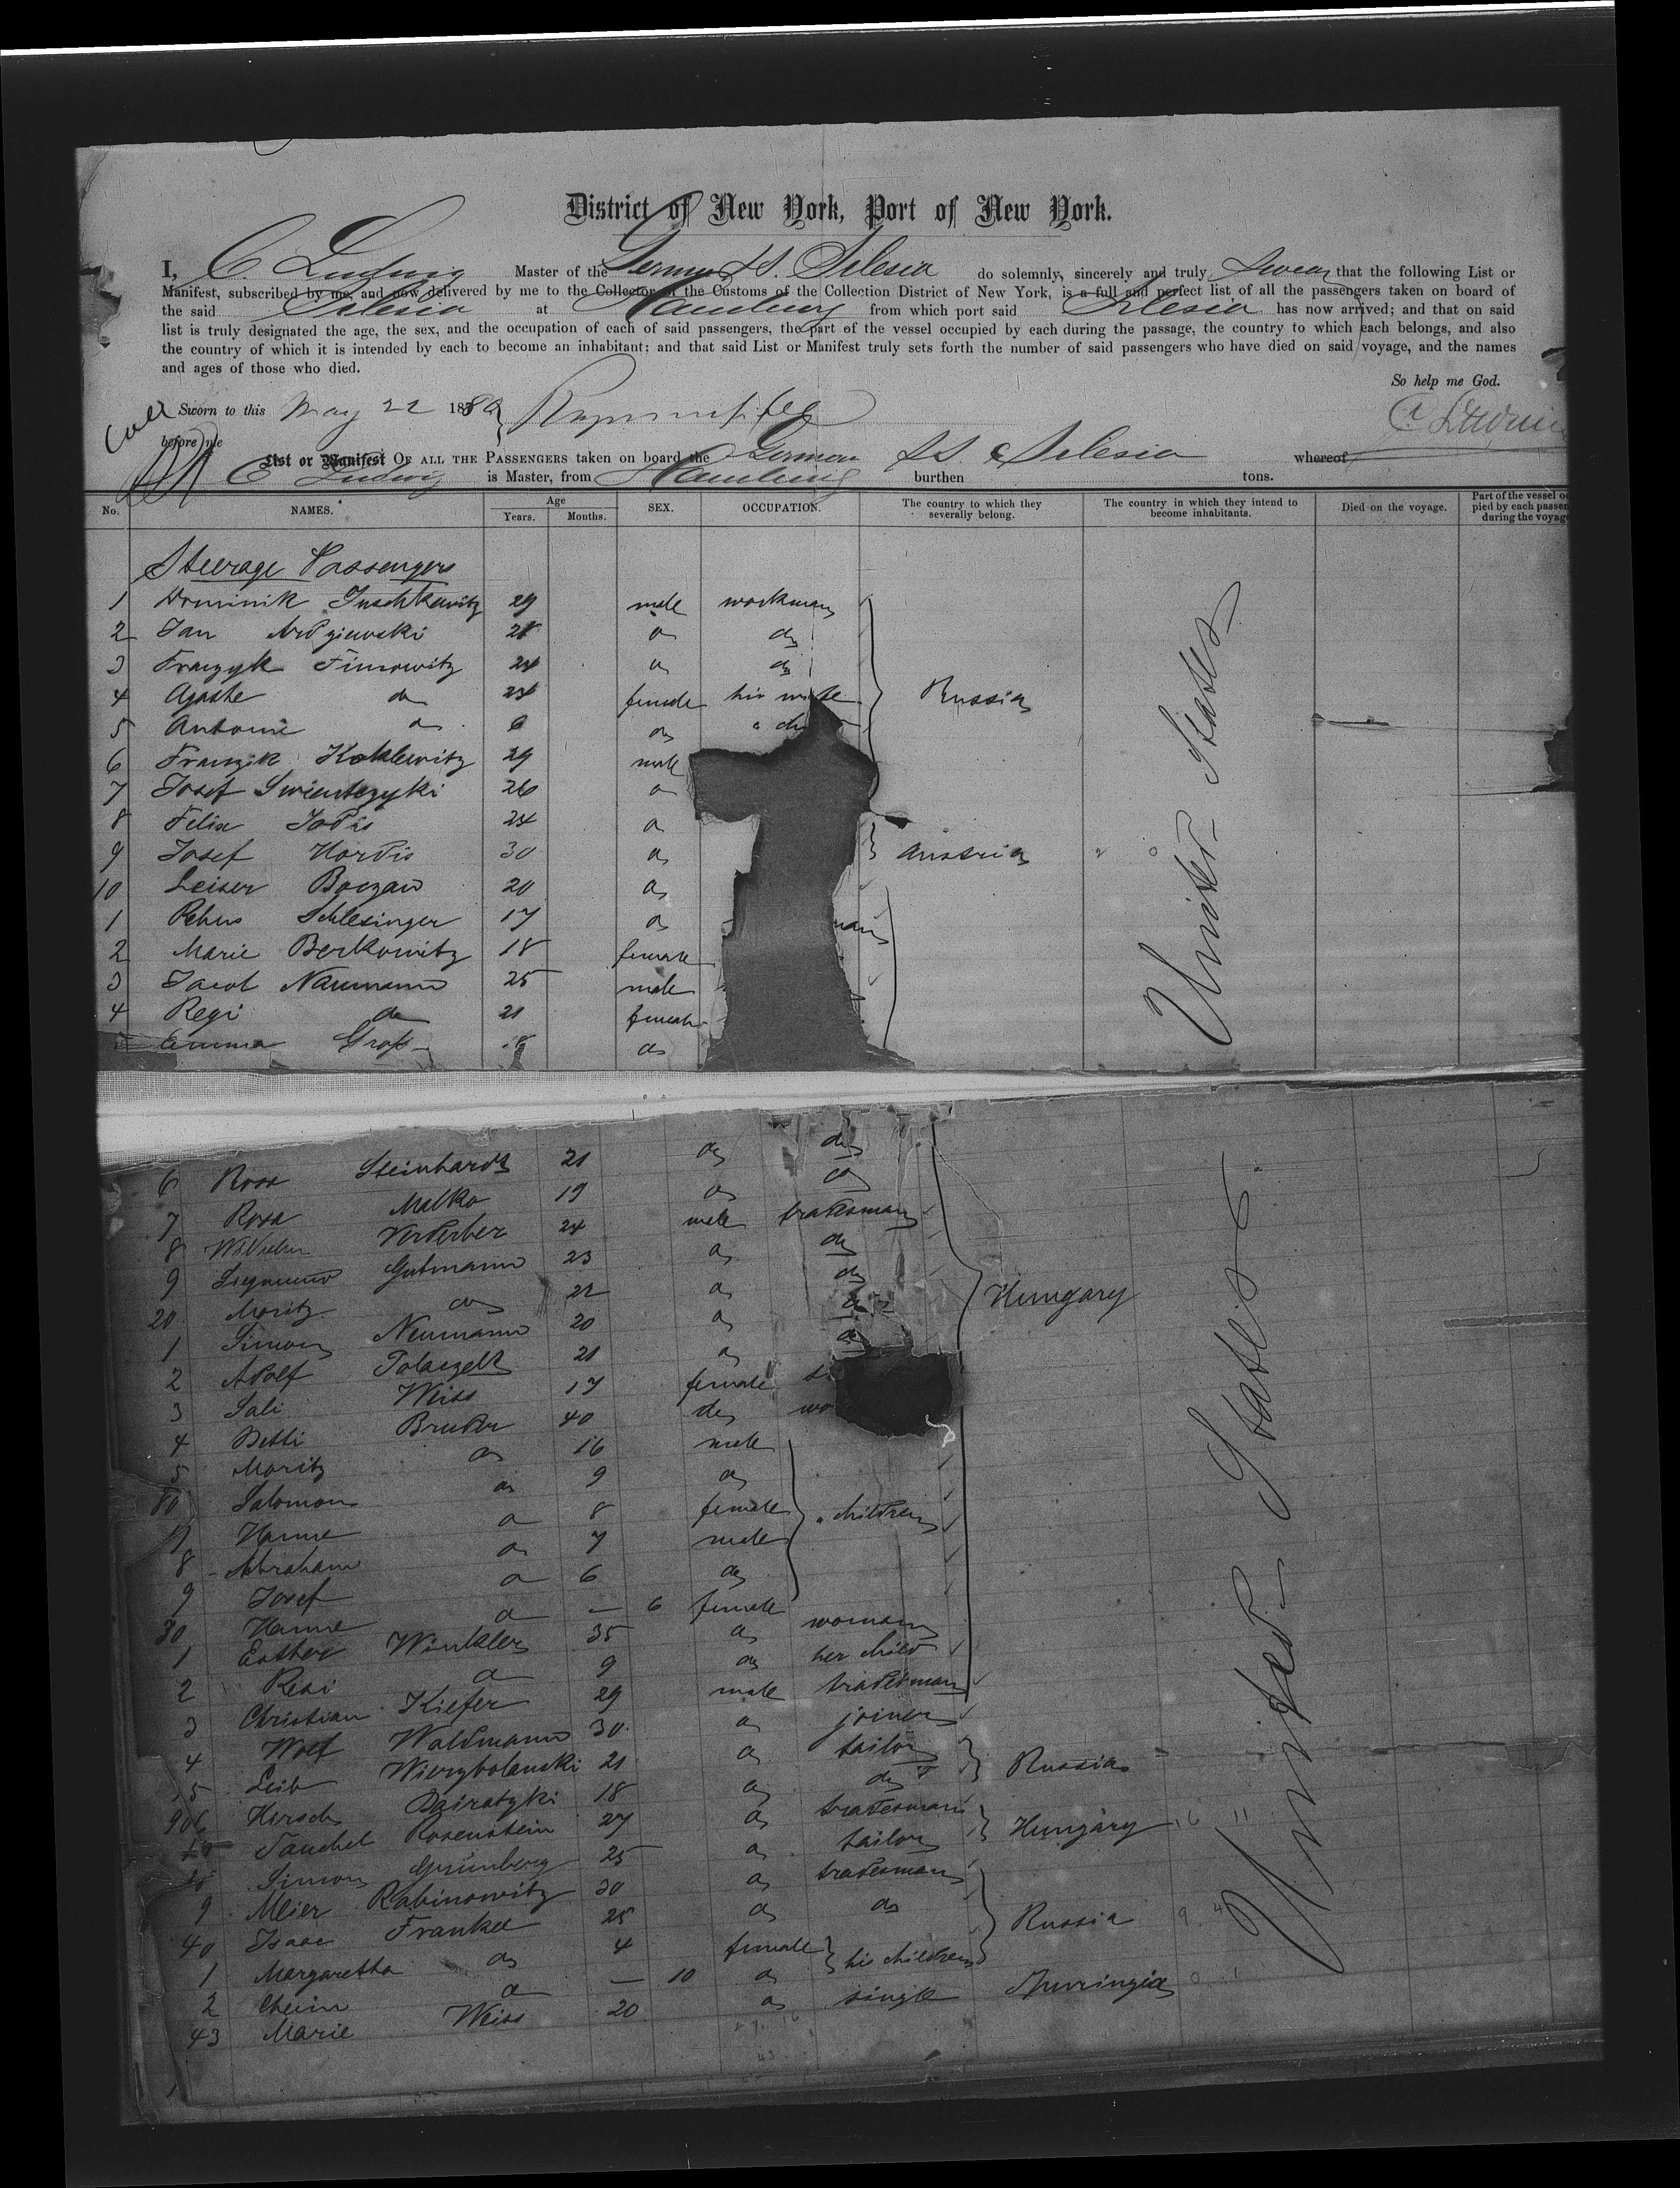 District of New York, Port of New York.
I, C. Ludwig Master of the German SS. Silesia do solemnly, sincerely and truly swear that the following List or
Manifest, subscribed by me, and now delivered by me to the Collector of the Customs of the Collection District of New York, is a full and perfect list of all the passengers taken on board of
the said Silesia at Hamburg from which port said Silesia has now arrived; and that on said
list is truly designated the age, the sex, and the occupation of each of said passengers, the part of the vessel occupied by each during the passage, the country to which each belongs, and also
the country of which it is intended by each to become an inhabitant: and that said List or Manifest truly sets forth the number of said passengers who have died on said voyage, and the names
and ages of those who died.
So help me God.
Sworn to this May 22 188
before me
List or Manifest OF ALL THE PASSENGERS taken on board the German SS. Silesia whereof
C Ludwig is Master, from Hamburg burthen tons.
No. NAMES. Age Years. Months. SEX. OCCUPATION. The country to which they severally belong. The country in which they intend to become inhabitants. Died on the voyage. Part of the vessel during the
Steerage Passengers
1 Dominik 29 male workman
2 Jan 21 do do
3 Finowitz 24 do do
4 Agathe do 24 female his Russia United States
5 Antonie do 6 do
6 29 male
7 Josef 26 do
8 Felix 24 do
9 Josef 30 do Austria
10 Leiser 20 do
1 Schlesinger 17 do
2 Marie Berkowitz 18 female
3 Jacob Naumann 25 male
4 Regi do 21 female
Emma Groß do
6 Rosa Steinhardt 21 do do
7 Rosa Malko 19 do do
8 Wilhelm Verderber 24 male tradesman
9 Siegmund Gutmann 23 do do
20 Moritz do 22 do do Hungary
1 Simon Neumann 20 do do
2 Adolf 21 do do
3 Sali Weiss 17 female
4 Betti Bruder 40 do
5 Moritz do 16 male
Salomon do 9 do
Hanne do 8 female " children
8 Abraham do 7 male
9 Josef do 6 do
30 Hanne do — 6 female
1 Esther Winkler 35 do woman
2 Resi do 9 do her child
3 Christian Kiefer 29 male tradesman
4 Wolf Waldmann 30 do joiner
5 Leib Wierzbolanski 21 do tailor Russia
Hirsch 18 do do
Rosenstein 27 do tradesman Hungary
Simon Grünberg 25 do tailor
9 Meier Rabinowitz 30 do tradesman
40 Isaac Frankel 25 do do Russia
1 Margaretha do 4 female his children
2 do — 10 do
43 Marie Weiss 20 do single
United States